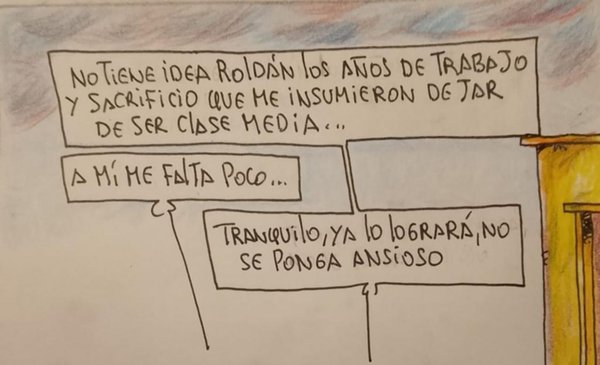 NO TIENE IDEA ROLDÁN LOS AÑOS DE TRABAJO
Y SACRIFICIO QUE ME INSUMIERON DEJAR
DE SER CLASE MEDIA...
A MÍ ME FALTA POCO...
TRANQUILO, YA LO LOGRARÁ, NO
SE PONGA ANSIOSO